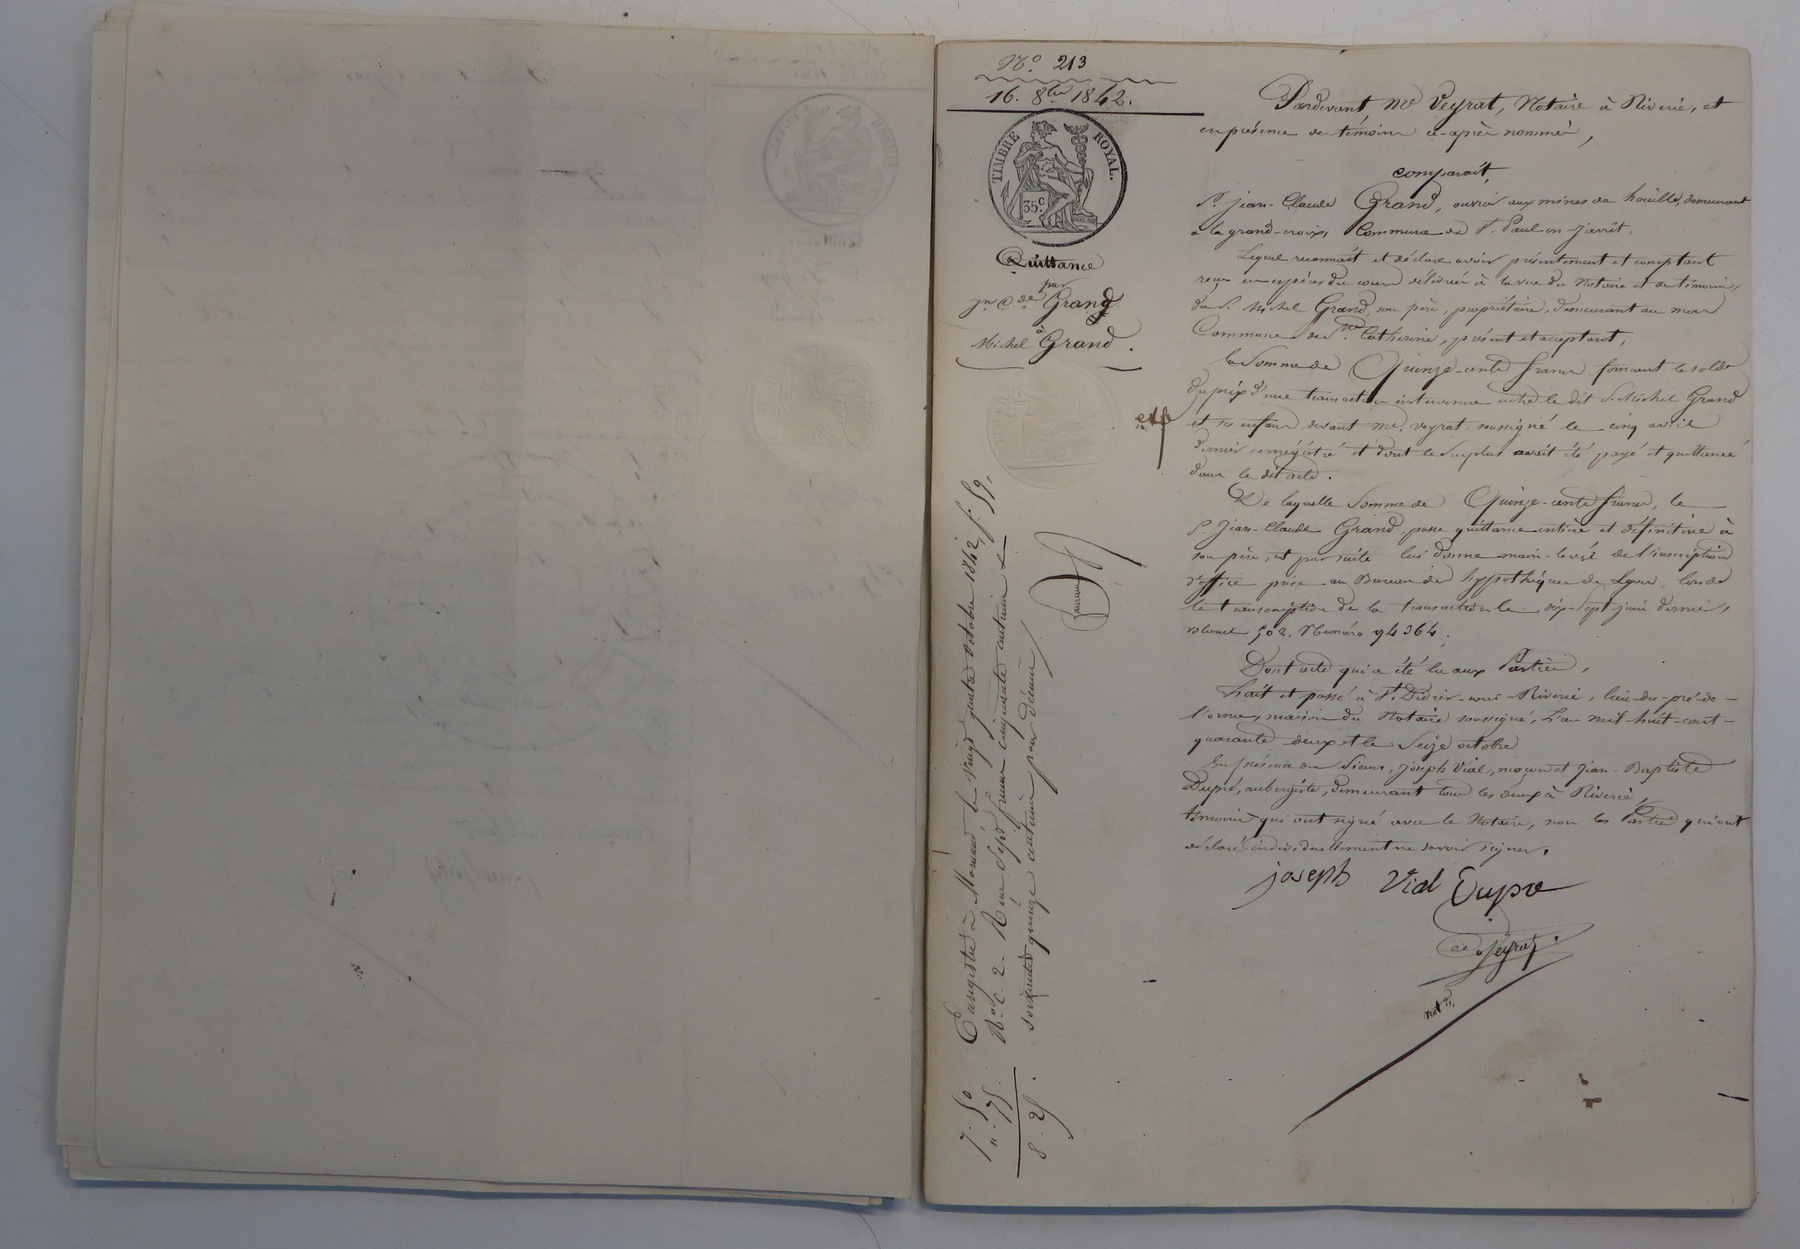 N.º 213
16. 8bre 1842.
TIMBRE ROYAL.
35.c
Quittance
par
Jn. Cde. Grand
à
Michel Grand.
Pardevant Me. Veyrat, Notaire à Riverie, et
en présence des témoins ci-après nommés,
comparaît,
S. Jean-Claude Grand, ouvrier aux mines de houille, demeurant
à la grand-croix, Commune de St. Paul en Jarrêt.
Lequel reconnaît et déclare avoir présentement et comptant
reçu en espèces du cours délivrées à la vue du Notaire et des témoins,
du S. Michel Grand, son père, propriétaire, demeurant au
Commune de Ste. Catherine, présent et acceptant,
la Somme de Quinze-cents francs formant le solde
du prix d'une transaction intervenue entre le dit S. Michel Grand
et ses enfans devant Me. Veyrat soussigné le cinq avril
dernier enrégistré et dont le Surplus avait été payé et quittancé
dans le dit acte.
De laquelle Somme de Quinze-cents francs, le
S. Jean-Claude Grand passe quittance entière et définitive à
son père, et par suite lui donne main-levée de l'inscription
d'office prise au Bureau des hypothèques de Lyon, lors de
la transcription de la transaction le dix-Sept juin dernier,
volume 502, Numéro 94364.
Dont acte qui a été lu aux Parties,
Fait et passé à St. Didier-sous-Riverie, lieu du pré-de-
l'orme, maison du Notaire soussigné, L'an mil-huit-cent-
quarante deux et le Seize octobre
En présence des Sieurs Joseph Vial, maçon et Jean-Baptiste
Dupré, aubergiste, demeurant tous les deux à Riverie,
témoins qui ont signé avec le Notaire, non les Parties qui ont
déclaré individuellement ne savoir signer.
joseph Vial Dupre
Veyrat
not.re
Enregistré à Mornant le vingt quatre octobre 1842, f.º 59,
R.º C. 2. Reçu Sept francs cinquante centimes &
soixante quinze centimes pour décime
7. 50
". 75.
8. 25.